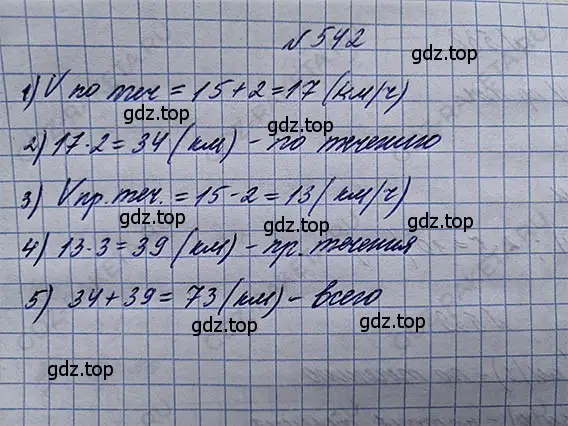 № 542
gdz.top
1) V по теч = 15 + 2 = 17 (км/ч)
gdz.top gdz.top
2) 17 · 2 = 34 (км) - по течению
gdz.top gdz.top
3) Vпр. теч. = 15 - 2 = 13 (км/ч)
gdz.top gdz.top
4) 13 · 3 = 39 (км) - пр. течения
gdz.top gdz.top
5) 34 + 39 = 73 (км) - всего
gdz.top gdz.top
gdz.top